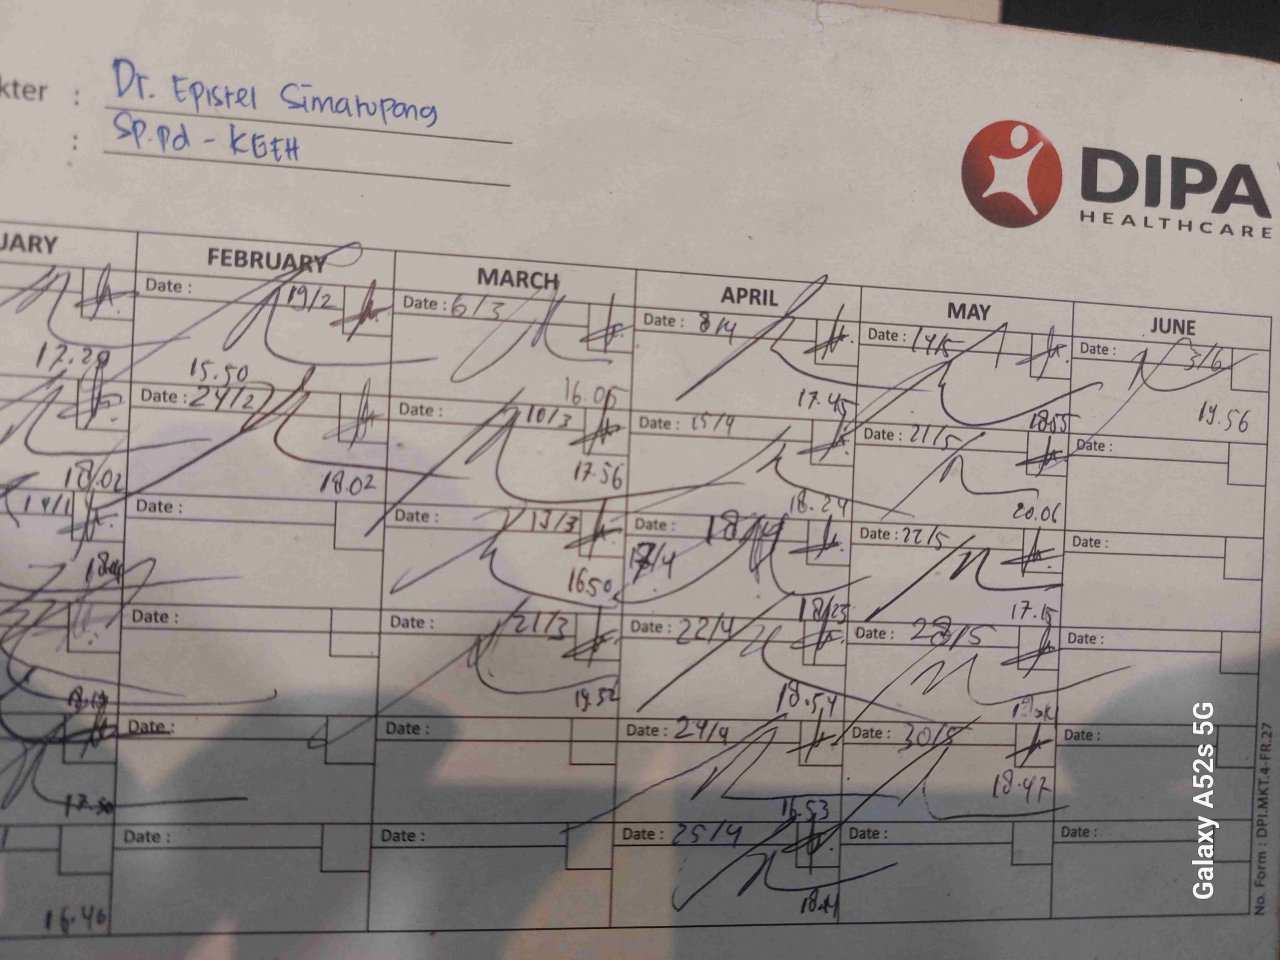 kter : Dr. Epistel Simatupang
: Sp.pd - KGEH
DIPA
HEALTHCARE
UARY FEBRUARY MARCH APRIL MAY JUNE
Date : 19/2 Date : 6/3 Date : 8/4 Date : 14/5 Date : 3/6
17.28 15.50 16.05 17.45 18.55 19.56
Date : 24/2 Date : 10/3 Date : 15/4 Date : 21/5 Date :
18.02 18.02 17.56 18.24 20.06
Date : Date : 13/3 Date : 18/4 Date : 22/5 Date :
16.50 18/23 17.15
Date : Date : 21/3 Date : 22/4 Date : 28/5 Date :
19.52 18.54
Date : Date : Date : 24/4 Date : 30/5 Date :
17.30 16.53 18.47
Date : Date : Date : 25/4 Date : Date :
16.46 18.14
No. Form : DPI.MKT.4-FR.27
Galaxy A52s 5G